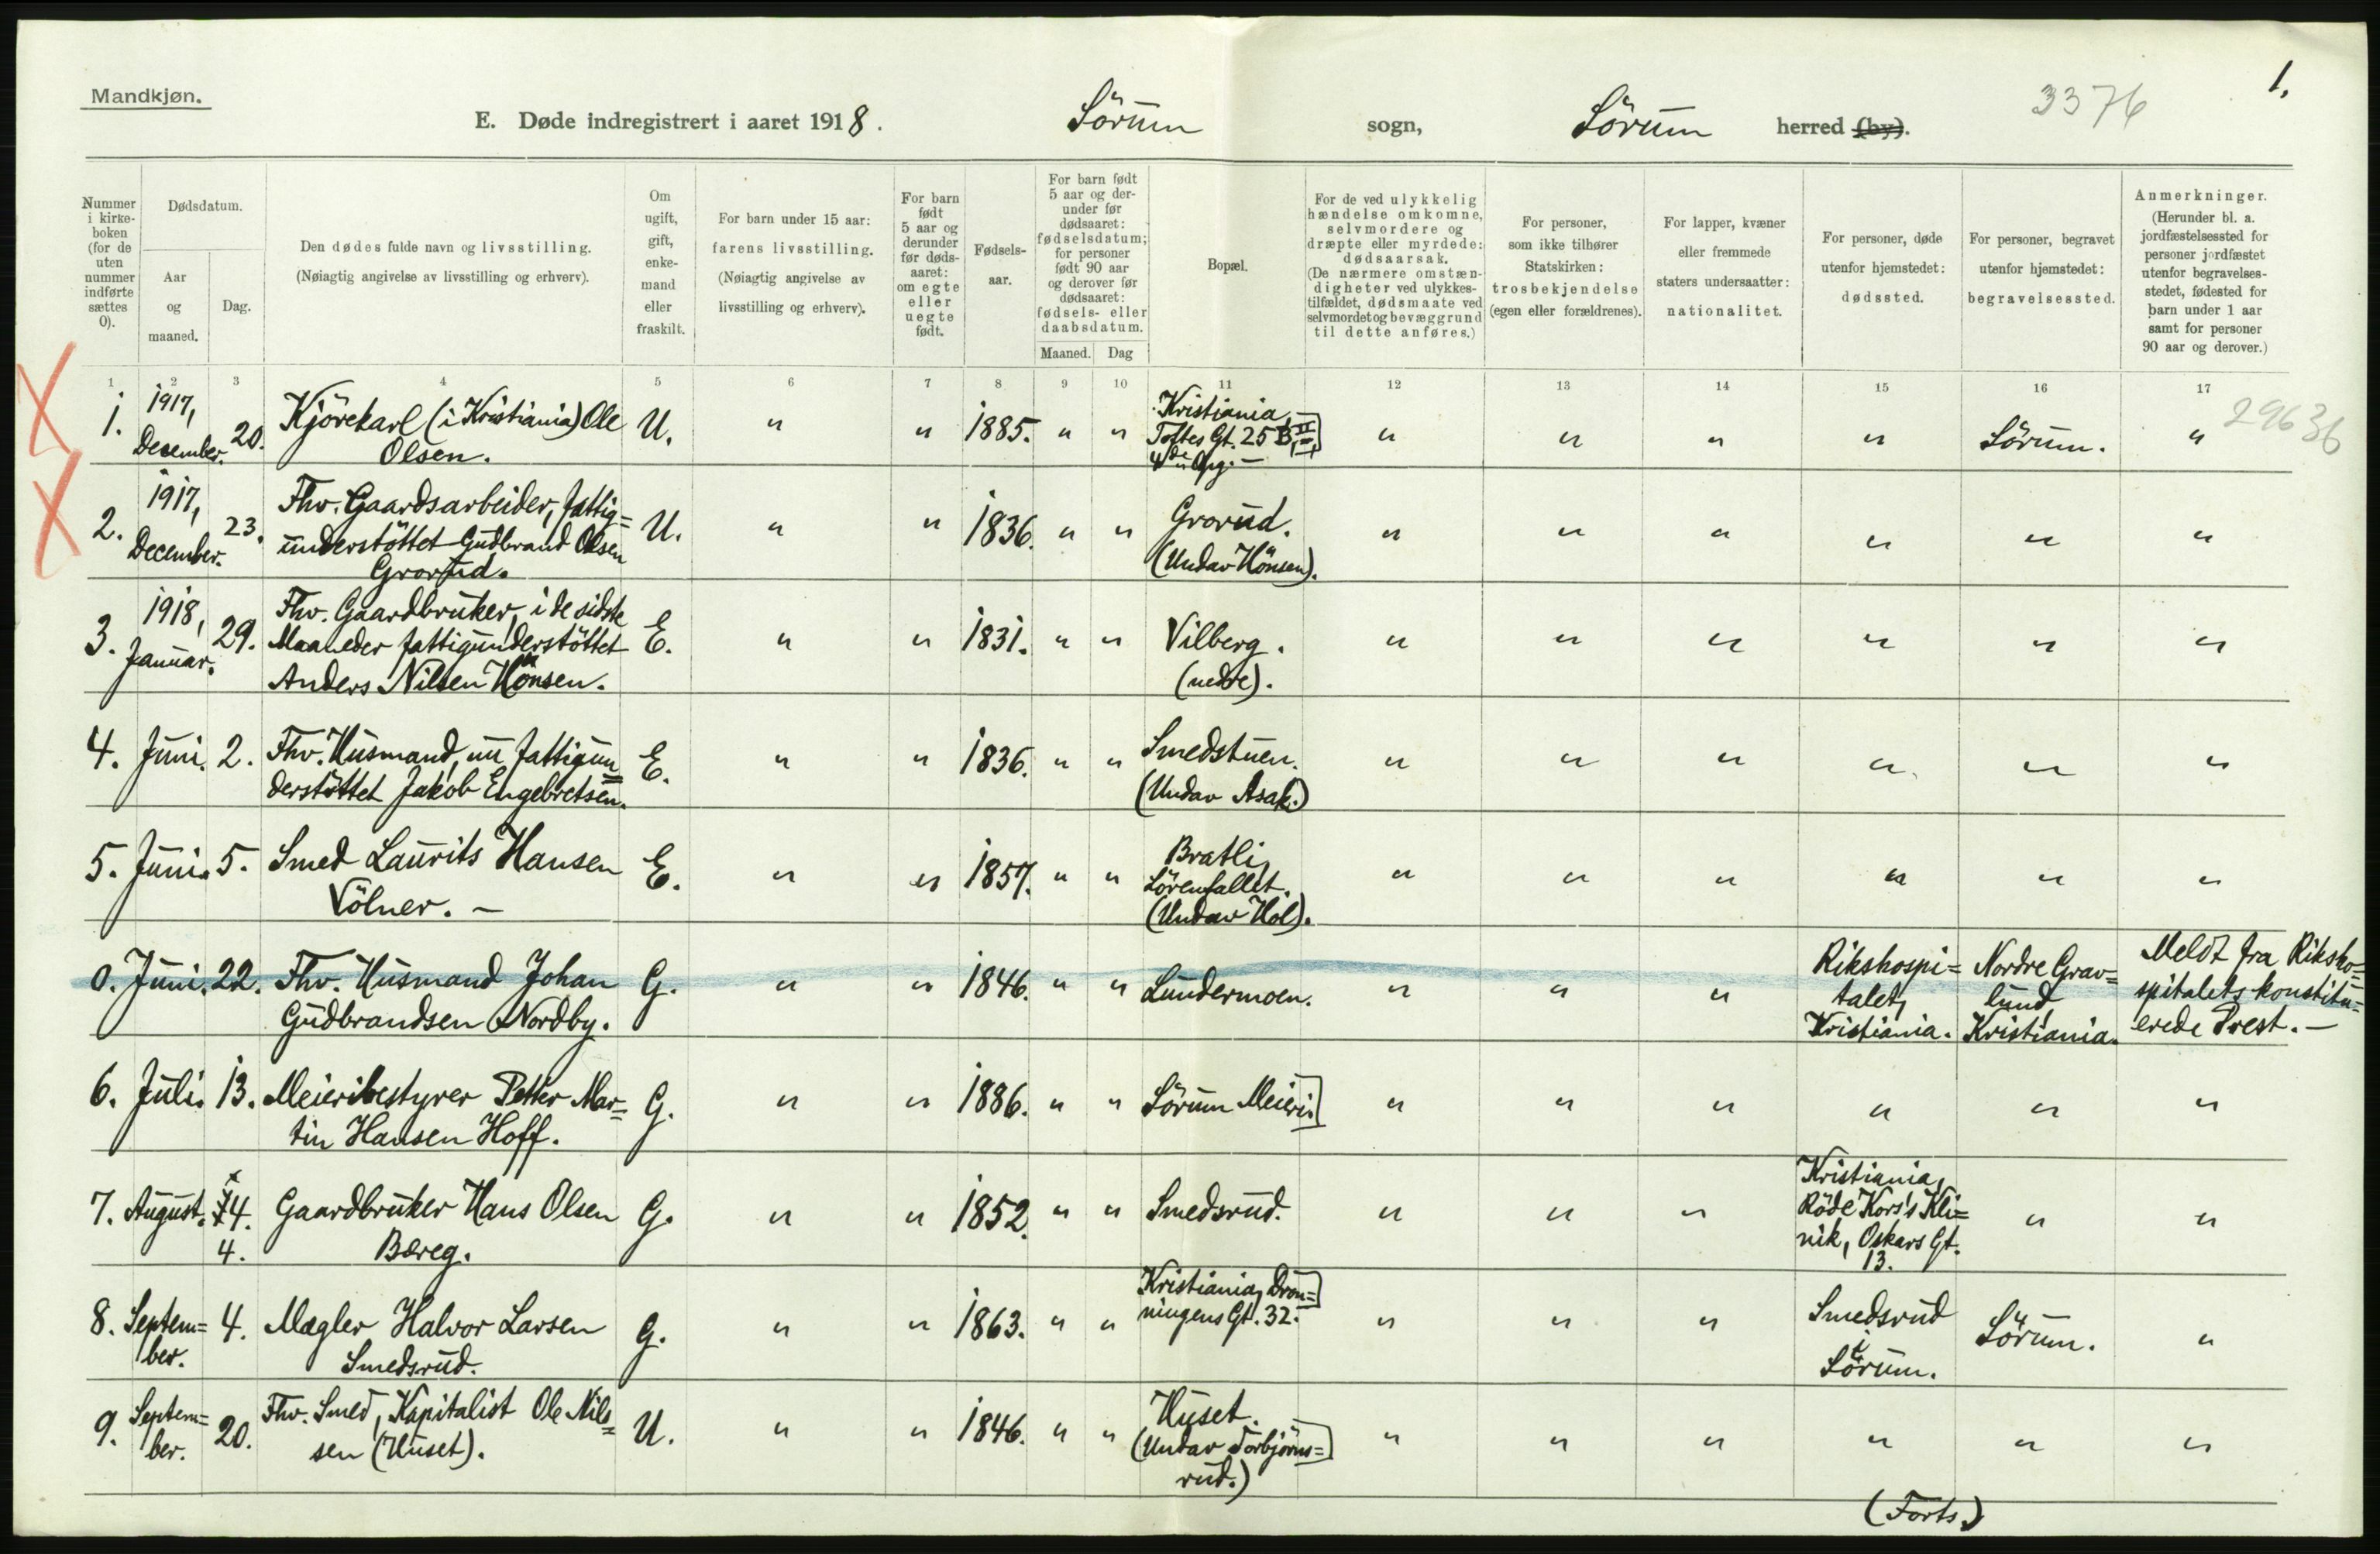 Mandkjøn.
1.
E. Døde indregistrert i aaret 1918. Sörum sogn, Sörum herred (by).
3376
Nummer i kirke-boken (for de uten nummer indførte sættes 0).
Dødsdatum.
Aar og maaned.
Dag.
Den dødes fulde navn og livsstilling.
(Nøiagtig angivelse av livsstilling og erhverv).
Om ugift, gift, enke-mand eller fraskilt.
For barn under 15 aar: farens livsstilling. (Nøiagtig angivelse av livsstilling og erhverv).
For barn født 5 aar og derunder før døds-aaret: om egte eller uegte født.
Fødsels-aar.
For barn født 5 aar og der-under før dødsaaret: fødselsdatum; for personer født 90 aar og derover før dødsaaret: fødsels- eller daabsdatum.
Maaned. Dag
Bopæl.
For de ved ulykkelig hændelse omkomne, selvmordere og dræpte eller myrdede: dødsaarsak. (De nærmere omstæn-digheter ved ulykkes-tilfældet, dødsmaate ved selvmordet og bevæggrund til dette anføres.)
For personer, som ikke tilhører Statskirken: trosbekjendelse (egen eller forældrenes).
For lapper, kvæner eller fremmede staters undersaatter: nationalitet.
For personer, døde utenfor hjemstedet: dødssted.
For personer, begravet utenfor hjemstedet: begravelsessted.
Anmerkninger. (Herunder bl. a. jordfæstelsessted for personer jordfæstet utenfor begravelses-stedet, fødested for barn under 1 aar samt for personer 90 aar og derover.)
1 2 3 4 5 6 7 8 9 10 11 12 13 14 15 16 17
29636
1. 1917, December. 20. Kjörekarl (i Kristiania) Ole Olsen. U. " " 1885. " " Kristiania, Toftes Gt. 25 B, II, 4de Opg. — " " " " Sörum. "
2. 1917, December. 23. Fhv. Gaardsarbeider, fattig=understöttet Gudbrand Olsen Grorud. U. " " 1836. " " Grorud. (Undav Hönsen). " " " " " "
3. 1918, Januar. 29. Fhv. Gaardbruker, i de sidste Maaneder fattigunderstöttet Anders Nilsen Hönsen. E. " " 1831. " " Vilberg. (nedre). " " " " " "
4. Juni. 2. Fhv. Husmand, nu fattigun=derstöttet Jakob Engebretsen. E. " " 1836. " " Smedstuen. (Undav Asak.) " " " " " "
5. Juni. 5. Smed Laurits Hansen Völner. — E. " " 1857. " " Bratli, Sörenfallet. (Undav Hol). " " " " " "
0. Juni. 22. Fhv. Husmand Johan Gudbrandsen Nordby. G. " " 1846. " " Lundermoen. " " " Rikshospi=talet, Kristiania. Nordre Grav=lund, Kristiania. Meldt fra Riksho=spitalets konstitu=erede Prest. —
6. Juli. 13. Meieribestyrer Petter Mar=tin Hansen Hoff. G. " " 1886. " " Sörum Meieri. " " " " " "
7. August. 4. 4. Gaardbruker Hans Olsen Bæreg. G. " " 1852. " " Smedsrud. " " " Kristiania, Röde Kors's Kli=nik, Oskars Gt. 13. " "
8. Septem=ber. 4. Mægler Halvor Larsen Smedsrud. G. " " 1863. " " Kristiania, Dron=ningens Gt. 32. " " " Smedsrud i Sörum. Sörum. "
9. Septem=ber. 20. Fhv. Smed, Kapitalist Ole Nils=sen (Huset). U. " " 1846. " " Huset. (Undav Torbjörns=rud.) " " " " " "
(Forts.)